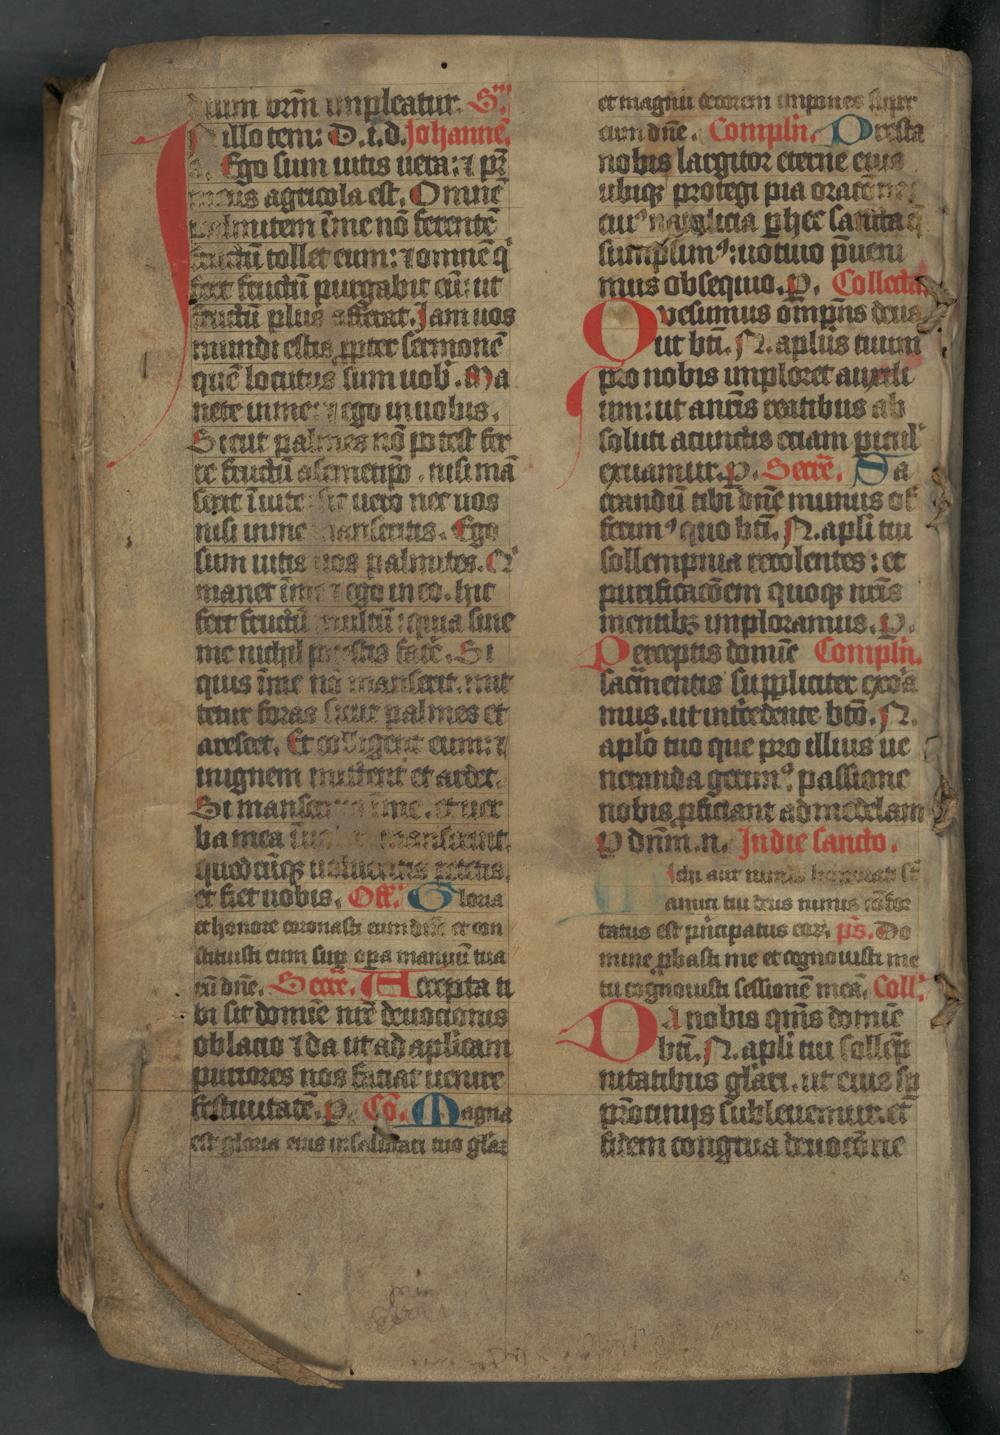 dium vr̄m impleatur. S.
In illo tem: D. i. d. Johanne.
s. Ego sum uitis uera: ⁊ pr̄
meus agricola est. Omnē
palmitem ī me nō ferentē
fructū tollet eum: ⁊ omnē q'
fert fructū purgabit eū: ut
fructū plus afferat. Jam uos
mundi estis ꝓpter sermonē
quē locutus sum uob'. Ma
nete in me: ⁊ ego in uobis.
Sicut palmes nō potest fer
re fructū a semetip̄o, nisi mā
serit ī uite: sic uero nec uos
nisi in me manseritis. Ego
sum uitis uos palmites. Q'
manet ī me ⁊ ego in eo. hic
fert fructū multū: quia sine
me nichil potestis facē. Si
quis ī me nō manserit. mit
tetur foras sicut palmes et
arescet. Et colligent eum: ⁊
in ignem mittent et ardet.
Si manseritis ī me. et uer
ba mea ī uobis manserint.
quodcūqꝫ uolueritis petetis.
et fiet uobis. Off. Gloria
et honore coronasti eum dn̄e et con
stituisti eum sup opa manuū tua
rū dn̄e. Secre. Accepta ti
bi sit domīe nr̄e deuocionis
oblacio ⁊ da ut ad aplicam
puriores nos faciat uenire
festiuitatē. p. Co. Magna
est gloria eius in salutari tuo glār
et magnū decorem impones super
eum dn̄e. Compln̄. Presta
nobis largitor eterne eius
ubiqꝫ protegi pia
sumpsim': uotiuo p̄ueni
mus obsequio. p. Collecta
Quesumus om̄pn̄s deus
ut bt̄i. N. aplūs tuum
pro nobis imploret auxili
um: ut a nr̄is reatibus ab
soluti a cunctis eciam picul'
eruamur. p. Secre. Sa
crandū tibi dn̄e munus of
ferim' quo bt̄i. N. apli tui
sollempnia recolentes: et
purificacōem quoqꝫ nr̄is
mentibꝫ imploramus. p.
Perceptis domīe Compln̄.
sacr̄mentis suppliciter exora
mus. ut int̄cedente bt̄o. N.
aplō tuo que pro illius ue
neranda gerim' passione
nobis ꝓficiant ad medelam
P dn̄m. n. In die sancto.
Michi aut nimis honorati st̄
amici tui deus nimis cōfor
tatus est principatus eoꝝ. ps. Do
mine ꝓbasti me et cognouisti me
tu cognouisti sessionē meā. Coll.
Da nobis qm̄s domīe
bt̄i. N. apli tui sollēp
nitatibus glāri. ut eius sp̄
pr̄ocinijs subleuemur: et
fidem congrua deuocōne